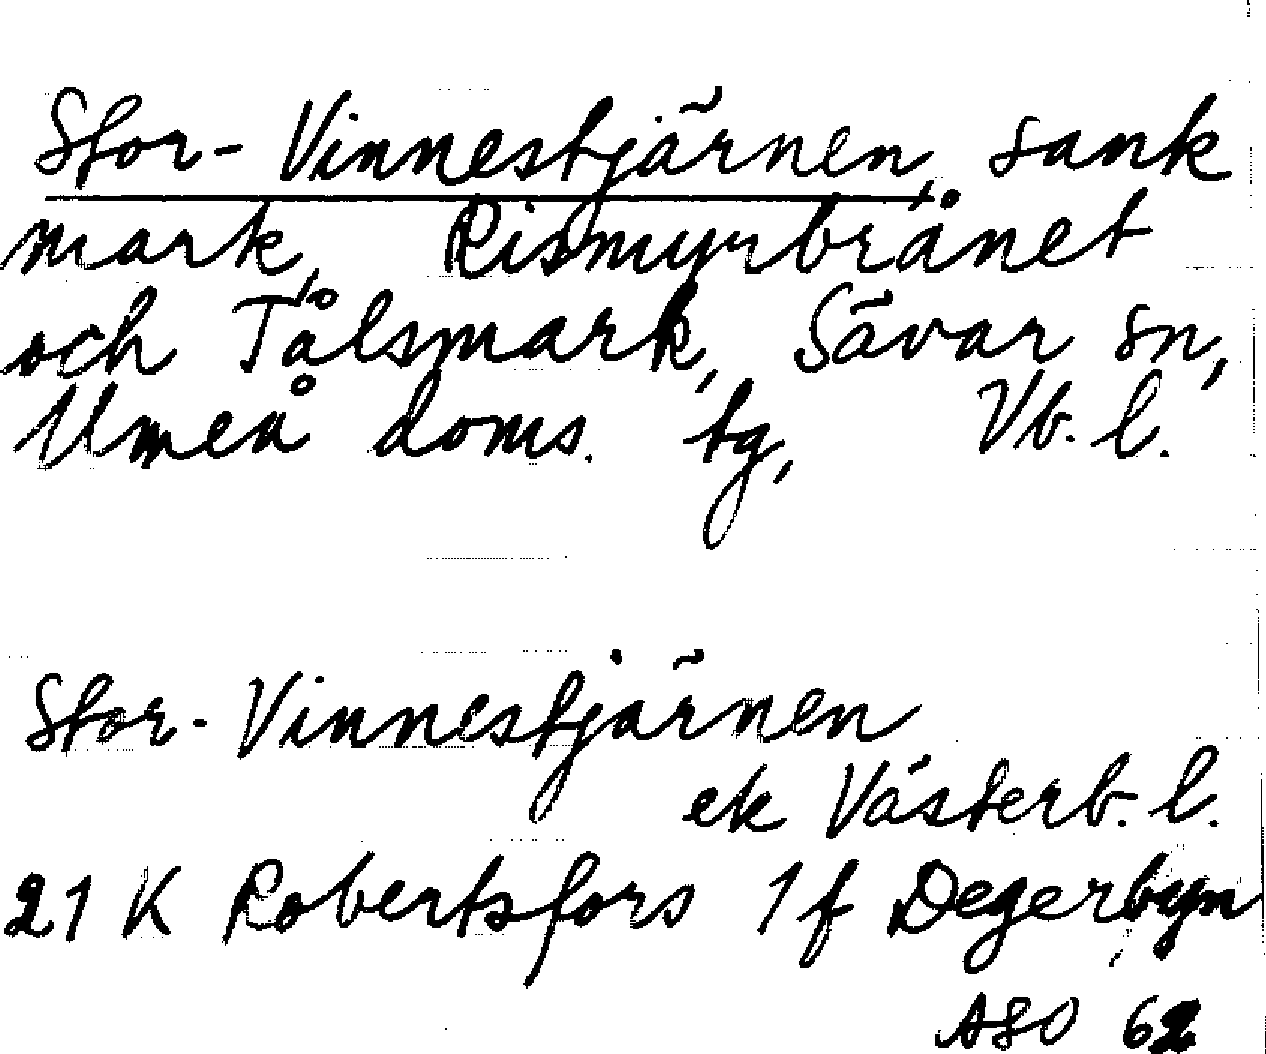 Stor-Vinnestjärnen, sank
mark, Rismyrbrånet
och Tålsmark, Sävar sn,
Umeå doms. tg, Vb. l.
Stor-Vinnestjärnen
ek Västerb. l.
21 K Robertsfors 1 f Degerbyn
ASO 62